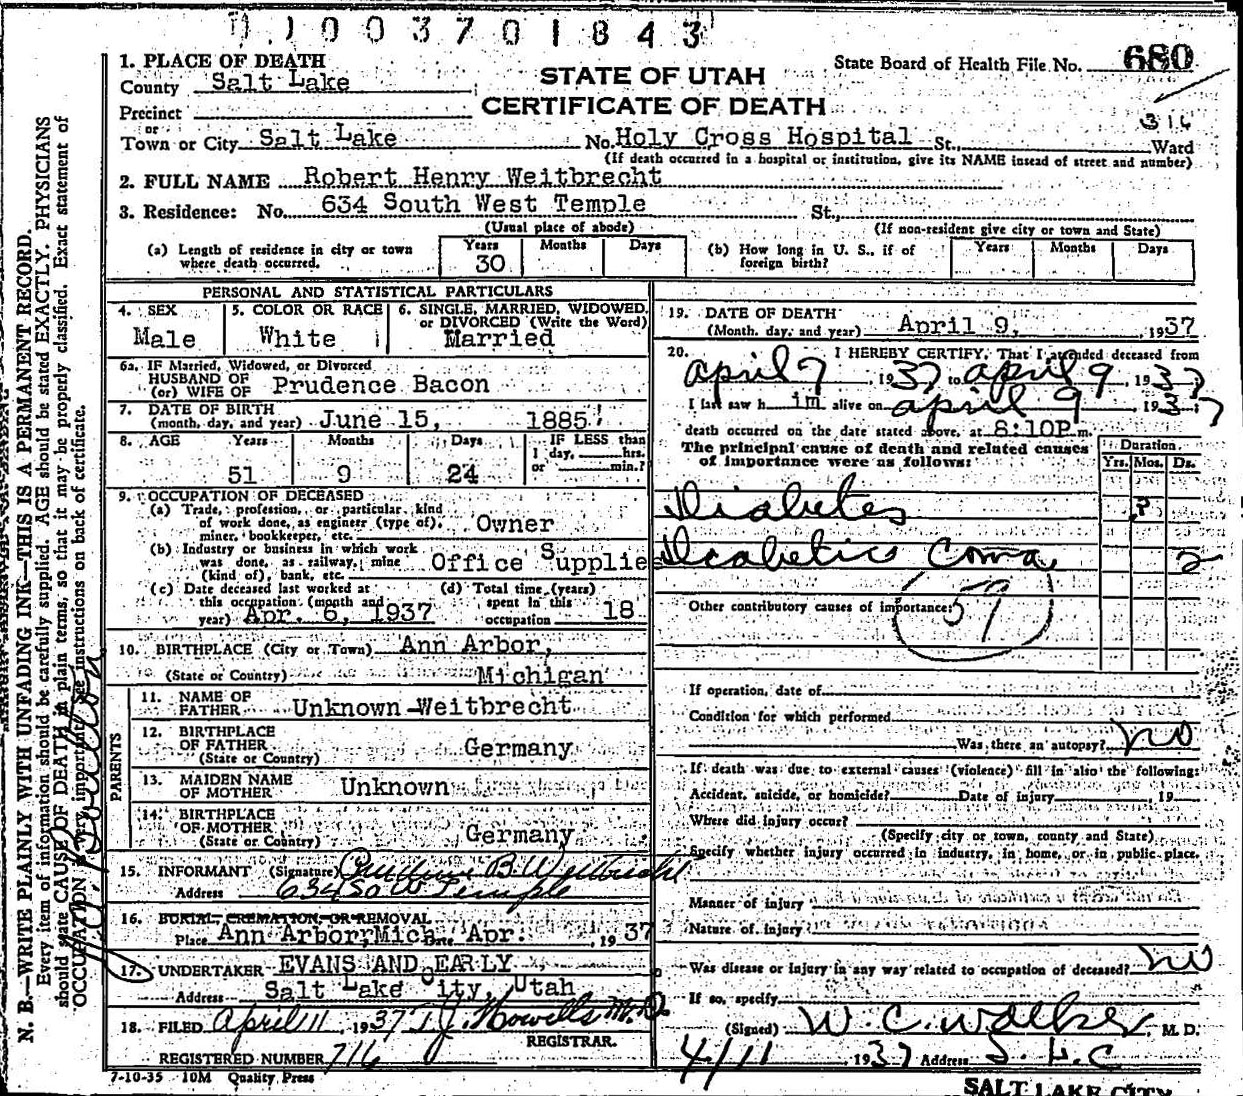 1003701843
1. PLACE OF DEATH
County Salt Lake
STATE OF UTAH
CERTIFICATE OF DEATH
State Board of Health File No. 680
316
Precinct
or
Town or City Salt Lake No. Holy Cross Hospital St., Ward
(If death occurred in a hospital or institution, give its NAME insead of street and number)
2. FULL NAME Robert Henry Weitbrecht
3. Residence: No. 634 South West Temple St.,
(Usual place of abode) (If non-resident give city or town and State)
(a) Length of residence in city or town where death occurred. Years 30 Months Days
(b) How long in U. S., if of foreign birth? Years Months Days
PERSONAL AND STATISTICAL PARTICULARS
4. SEX Male
5. COLOR OR RACE White
6. SINGLE, MARRIED, WIDOWED, or DIVORCED (Write the Word) Married
6a. IF Married, Widowed, or Divorced
HUSBAND OF
(or) WIFE OF Prudence Bacon
7. DATE OF BIRTH
(month, day, and year) June 15, 1885
8. AGE Years Months Days IF LESS than
1 day, hrs.
51 9 24 or min.?
9. OCCUPATION OF DECEASED
(a) Trade, profession, or particular kind
of work done, as engineer (type of),
miner, bookkeeper, etc. Owner
(b) Industry or business in which work
was done, as railway, mine
(kind of), bank, etc. Office Supplies
(c) Date deceased last worked at
this occupation (month and
year) Apr. 6, 1937
(d) Total time (years)
spent in this
occupation 18
10. BIRTHPLACE (City or Town) Ann Arbor,
(State or Country) Michigan
PARENTS
11. NAME OF
FATHER Unknown-Weitbrecht
12. BIRTHPLACE
OF FATHER
(State or Country) Germany
13. MAIDEN NAME
OF MOTHER Unknown
14. BIRTHPLACE
OF MOTHER
(State or Country) Germany
15. INFORMANT (Signature) Prudence B. Weitbrecht
Address 634 So W Temple
16. BURIAL, CREMATION, OR REMOVAL
Place Ann Arbor, Mich Date Apr. , 1937
17. UNDERTAKER EVANS AND EARLY
Address Salt Lake City, Utah
18. FILED April 11, 1937 T. J. Howells M.D.
REGISTRAR.
REGISTERED NUMBER 716
7-10-35 10M Quality Press
19. DATE OF DEATH
(Month, day, and year) April 9, 1937
20. I HEREBY CERTIFY, That I attended deceased from
April 7, 1937 to April 9, 1937
I last saw h im alive on April 9, 1937
death occurred on the date stated above, at 8:10P m.
The principal cause of death and related causes
of importance were as follows:
Duration
Yrs. Mos. Ds.
Diabetes ?
Diabetics Coma 2
Other contributory causes of importance: 59
If operation, date of
Condition for which performed
Was there an autopsy? no
If death was due to external causes (violence) fill in also the following:
Accident, suicide, or homicide? Date of injury , 19
Where did injury occur?
(Specify city or town, county and State)
Specify whether injury occurred in industry, in home, or in public place.
Manner of injury
Nature of injury
Was disease or injury in any way related to occupation of deceased? no
If so, specify
(Signed) W. C. Walker, M. D.
4/11 1937 Address S. L. C
SALT LAKE CITY
N. B.—WRITE PLAINLY WITH UNFADING INK—THIS IS A PERMANENT RECORD.
Every item of information should be carefully supplied. AGE should be stated EXACTLY. PHYSICIANS
should state CAUSE OF DEATH in plain terms, so that it may be properly classified. Exact statement of
OCCUPATION is very important. See instructions on back of certificate.